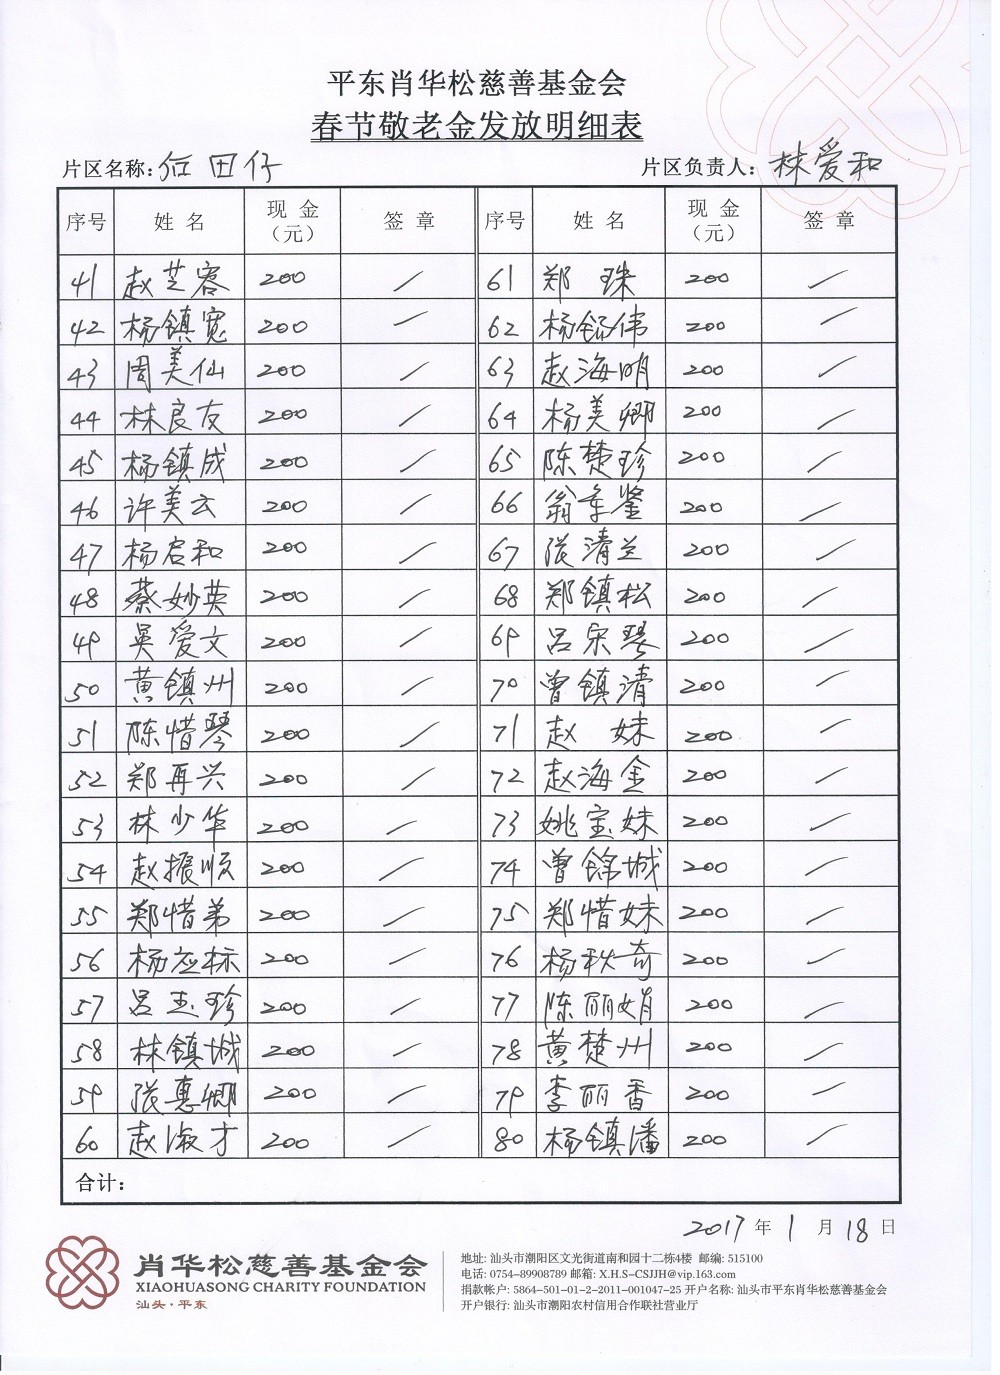 平东肖华松慈善基金会
春节敬老金发放明细表
片区名称: 后田仔 片区负责人: 林爱和
序号 姓名 现金（元） 签章 序号 姓名 现金（元） 签章
41 赵芝容 200 / 61 郑珠 200 /
42 杨镇宽 200 / 62 杨 伟 200 /
43 周美仙 200 / 63 赵海明 200 /
44 林良友 200 / 64 杨美卿 200 /
45 杨镇成 200 / 65 陈楚珍 200 /
46 许美云 200 / 66 翁 鉴 200 /
47 杨启和 200 / 67 张清兰 200 /
48 蔡妙英 200 / 68 郑镇松 200 /
49 吴爱文 200 / 69 吕宋琴 200 /
50 黄镇州 200 / 70 曾镇清 200 /
51 陈惜琴 200 / 71 赵妹 200 /
52 郑再兴 200 / 72 赵海金 200 /
53 林少华 200 / 73 姚宝妹 200 /
54 赵振顺 200 / 74 曾锦城 200 /
55 郑惜弟 200 / 75 郑惜妹 200 /
56 杨应标 200 / 76 杨秋奇 200 /
57 吕玉珍 200 / 77 陈丽娟 200 /
58 林镇城 200 / 78 黄楚州 200 /
59 张惠卿 200 / 79 李丽香 200 /
60 赵淑才 200 / 80 杨镇潘 200 /
合计:
2017年1月18日
肖华松慈善基金会
XIAOHUASONG CHARITY FOUNDATION
汕头·平东
地址: 汕头市潮阳区文光街道南和园十二栋4楼 邮编: 515100
电话: 0754-89908789 邮箱: X.H.S-CSJJH@vip.163.com
捐款帐户: 5864-501-01-2-2011-001047-25 开户名称: 汕头市平东肖华松慈善基金会
开户银行: 汕头市潮阳农村信用合作联社营业厅